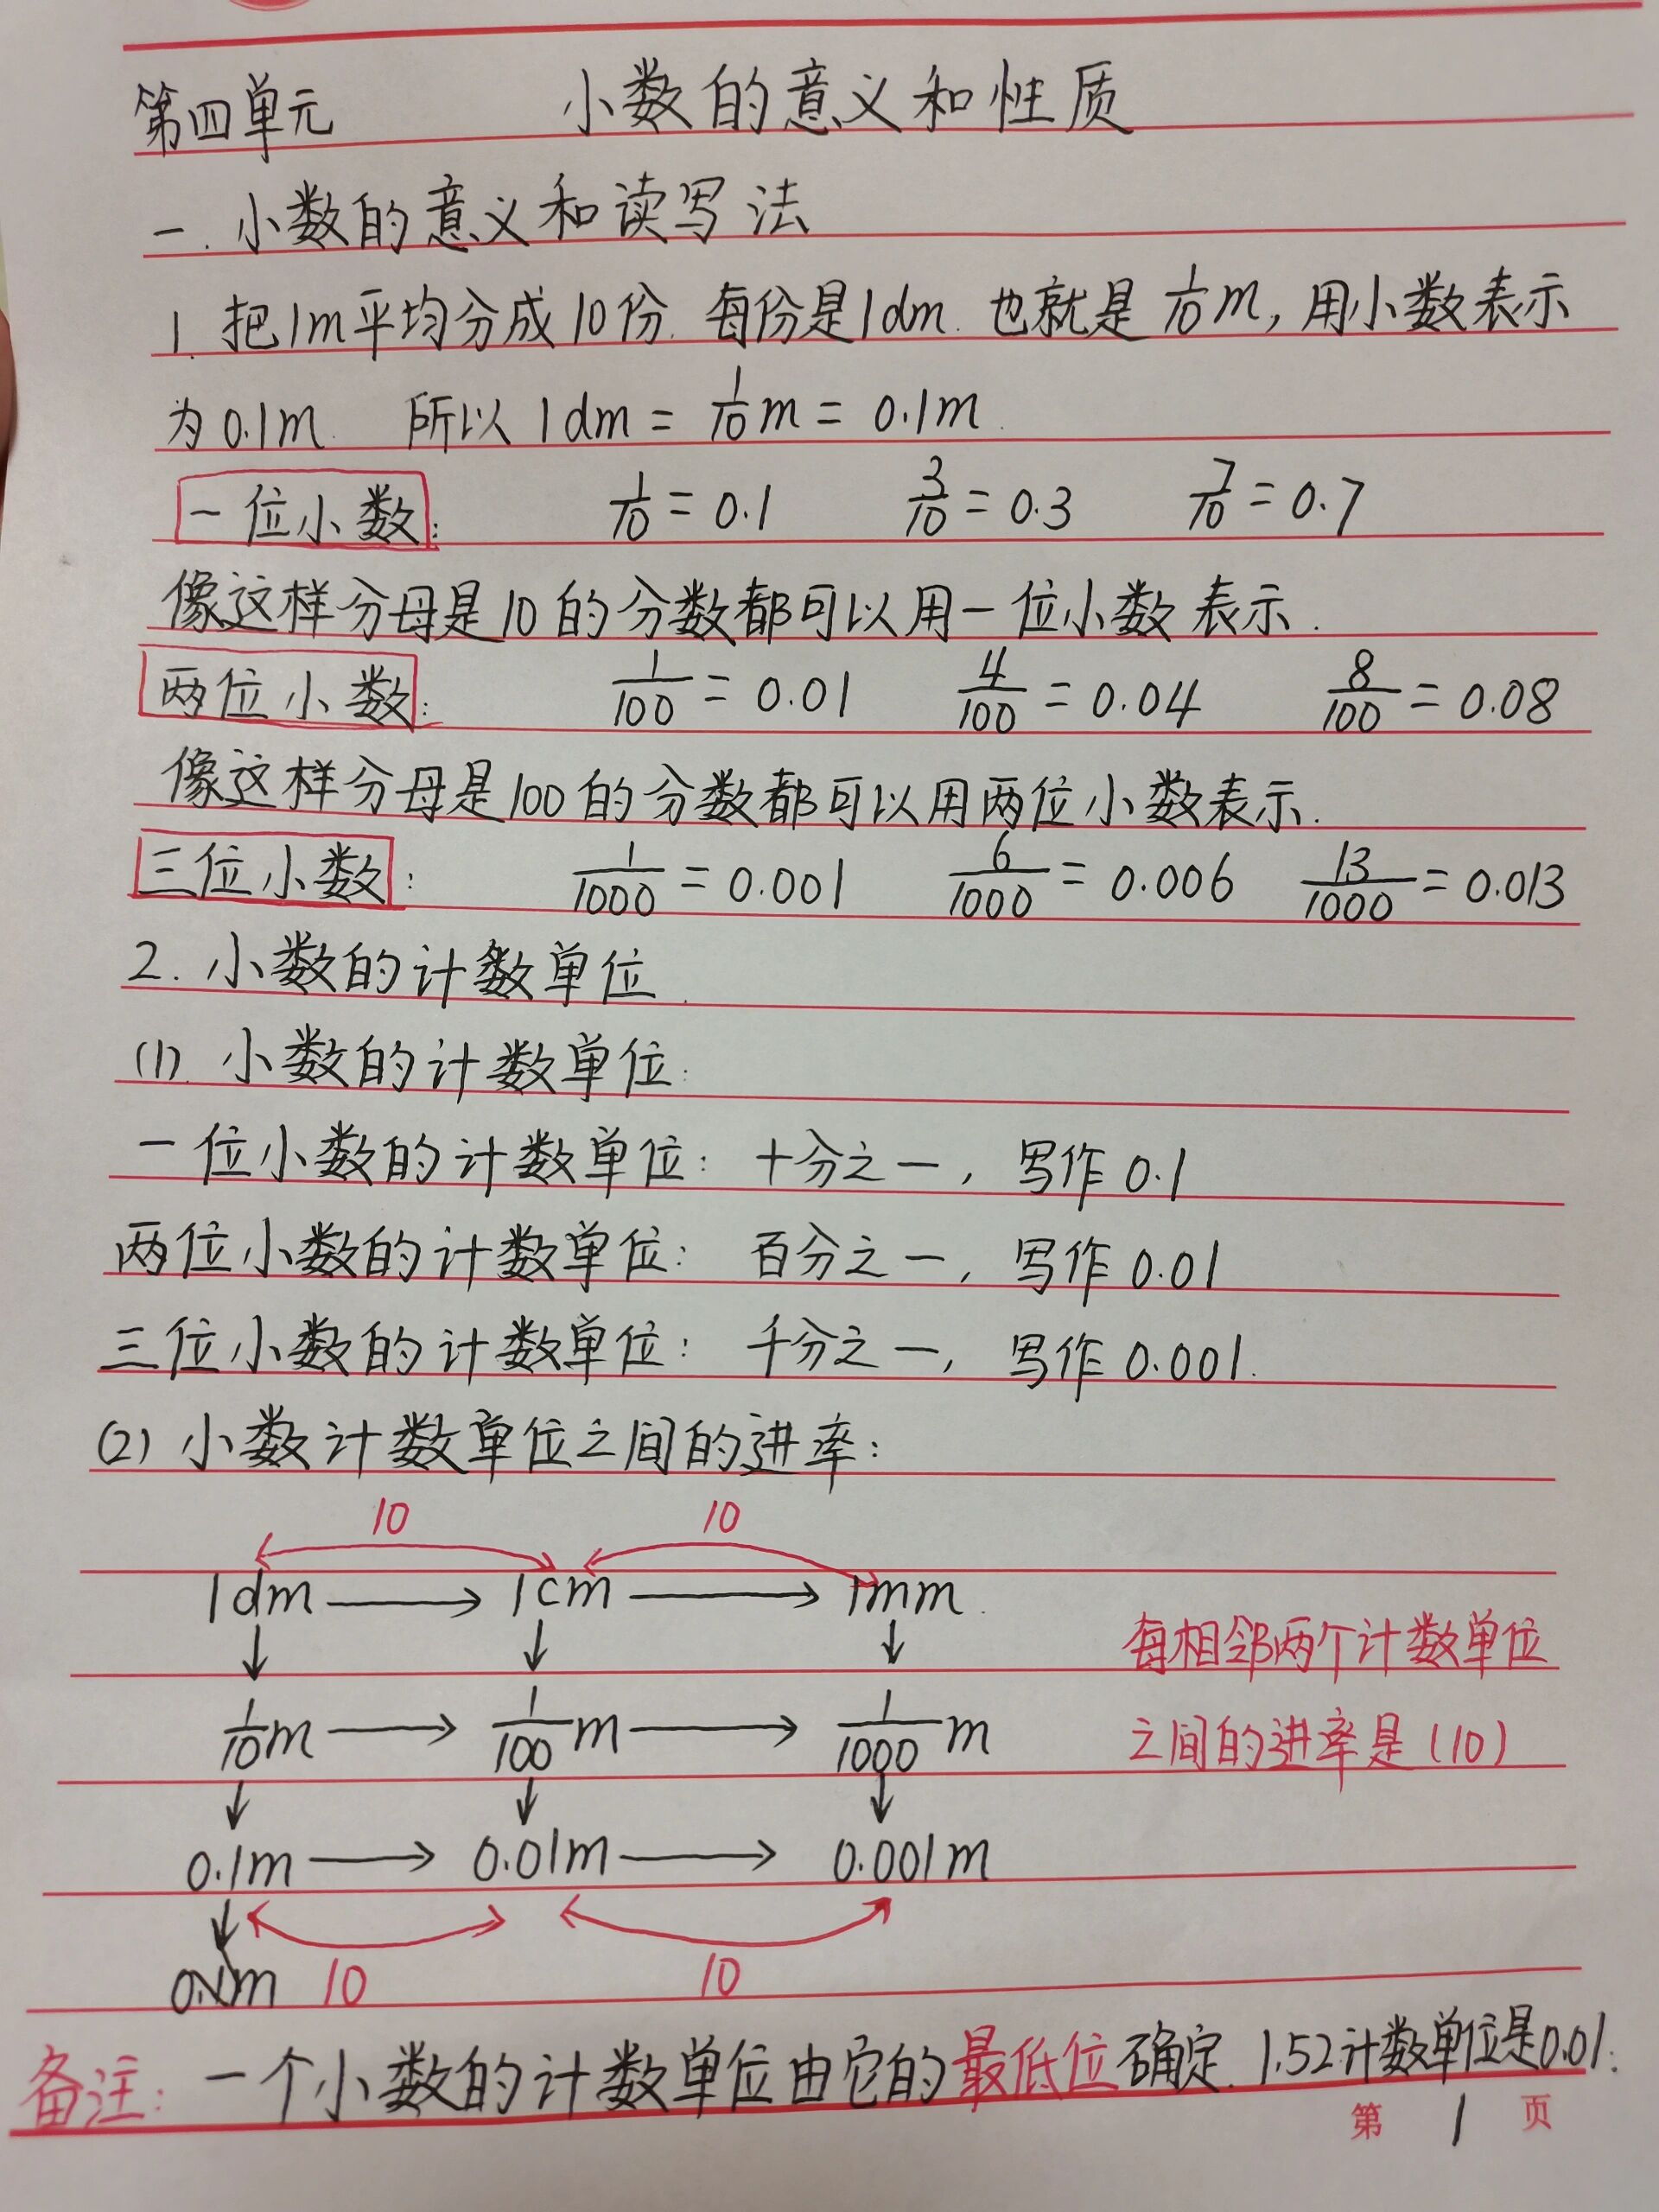 第四单元 小数的意义和性质
一. 小数的意义和读写法
1. 把1m平均分成10份. 每份是1dm. 也就是1/10m, 用小数表示
为0.1m. 所以1dm=1/10m=0.1m.
一位小数: 1/10=0.1 3/10=0.3 7/10=0.7
像这样分母是10的分数都可以用一位小数表示.
两位小数: 1/100=0.01 4/100=0.04 8/100=0.08
像这样分母是100的分数都可以用两位小数表示.
三位小数: 1/1000=0.001 6/1000=0.006 13/1000=0.013
2. 小数的计数单位.
(1). 小数的计数单位:
一位小数的计数单位: 十分之一, 写作0.1
两位小数的计数单位: 百分之一, 写作0.01
三位小数的计数单位: 千分之一, 写作0.001.
(2) 小数计数单位之间的进率:
10 10
1dm → 1cm → 1mm.
↓ ↓ ↓
每相邻两个计数单位
1/10m → 1/100m → 1/1000m
之间的进率是(10)
↓ ↓ ↓
0.1m → 0.01m → 0.001m
↓
0.1m 10 10
备注: 一个小数的计数单位由它的最低位确定. 1.52计数单位是0.01.
第 1 页